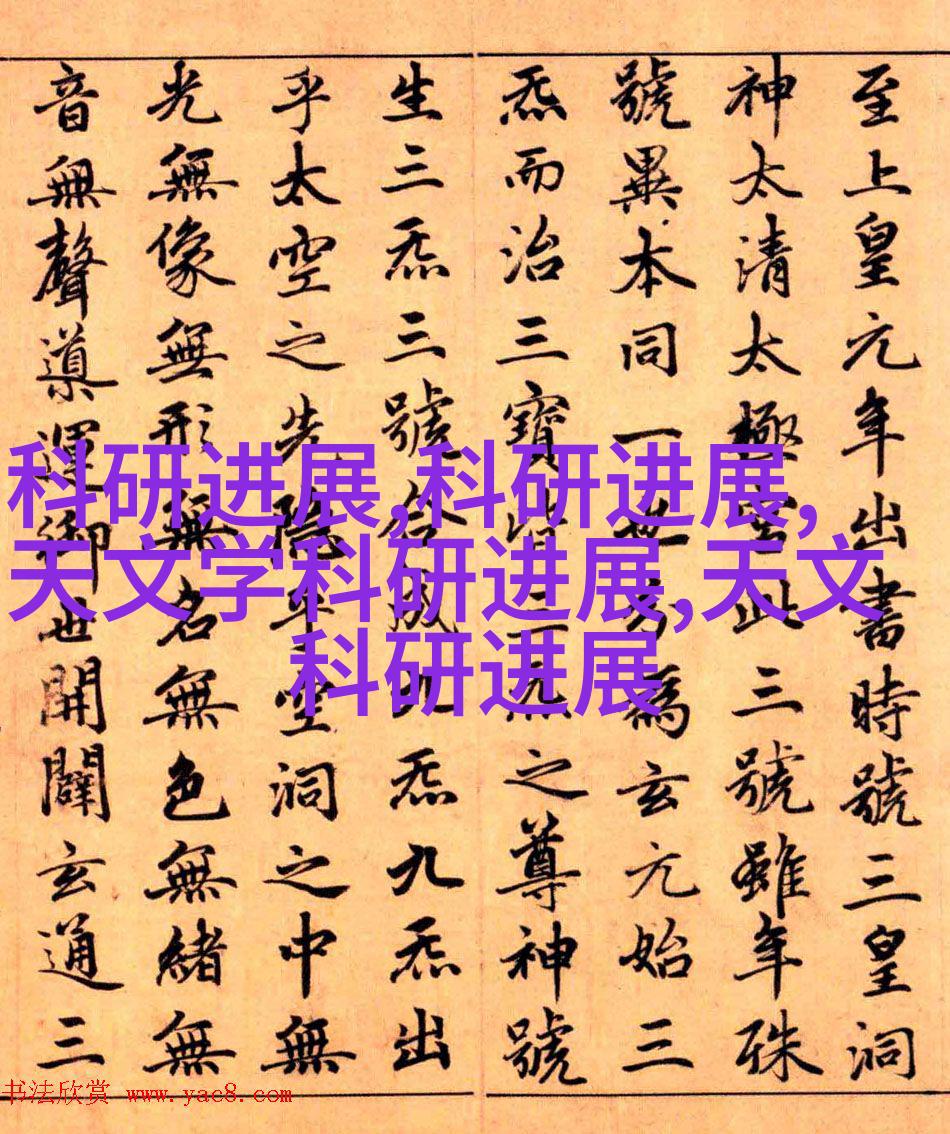 科研进展,科研进展,
天文学科研进展,天文
科研进展
至上皇元年出書時號三皇洞
神太清太極宮此三號雖年殊
號異本同一也分爲玄元始三
炁而治三寶皆三炁之尊神號
生三炁三號合成九炁九炁出
乎太空之先隱乎空洞之中無
光無像無形無名無色無緒無
音無聲導運御世開闢玄通三
书法欣赏 www.yac8.com